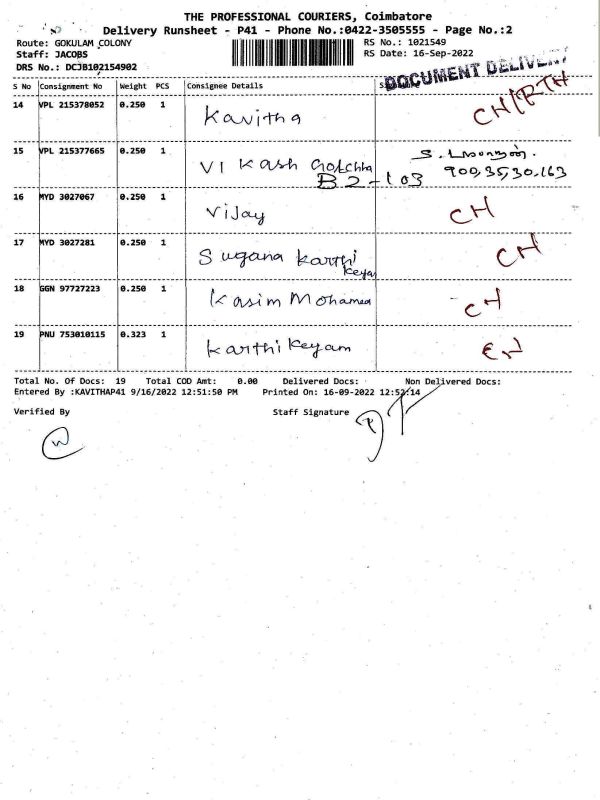 THE PROFESSIONAL COURIERS, Coimbatore
Delivery Runsheet - P41 - Phone No.:0422-3505555 - Page No.:2
Route: GOKULAM COLONY RS No.: 1021549
Staff: JACOBS RS Date: 16-Sep-2022
DRS No.: DCJB102154902
DOCUMENT DELIVERY
S No Consignment No Weight PCS Consignee Details
14 VPL 215378052 0.250 1 Kavitha CH/RTH
15 VPL 215377665 0.250 1 Vikash Golchha
B2-103 900,35,30,163
16 MYD 3027067 0.250 1 Vijay CH
17 MYD 3027281 0.250 1 Sugana Karthi CH
Keyan
18 GGN 97727223 0.250 1 Kasim Mohamed CH
19 PNU 753010115 0.323 1 Karthikeyam
Total No. Of Docs: 19 Total COD Amt: 0.00 Delivered Docs: Non Delivered Docs:
Entered By :KAVITHAP41 9/16/2022 12:51:50 PM Printed On: 16-09-2022 12:52:14
Verified By Staff Signature